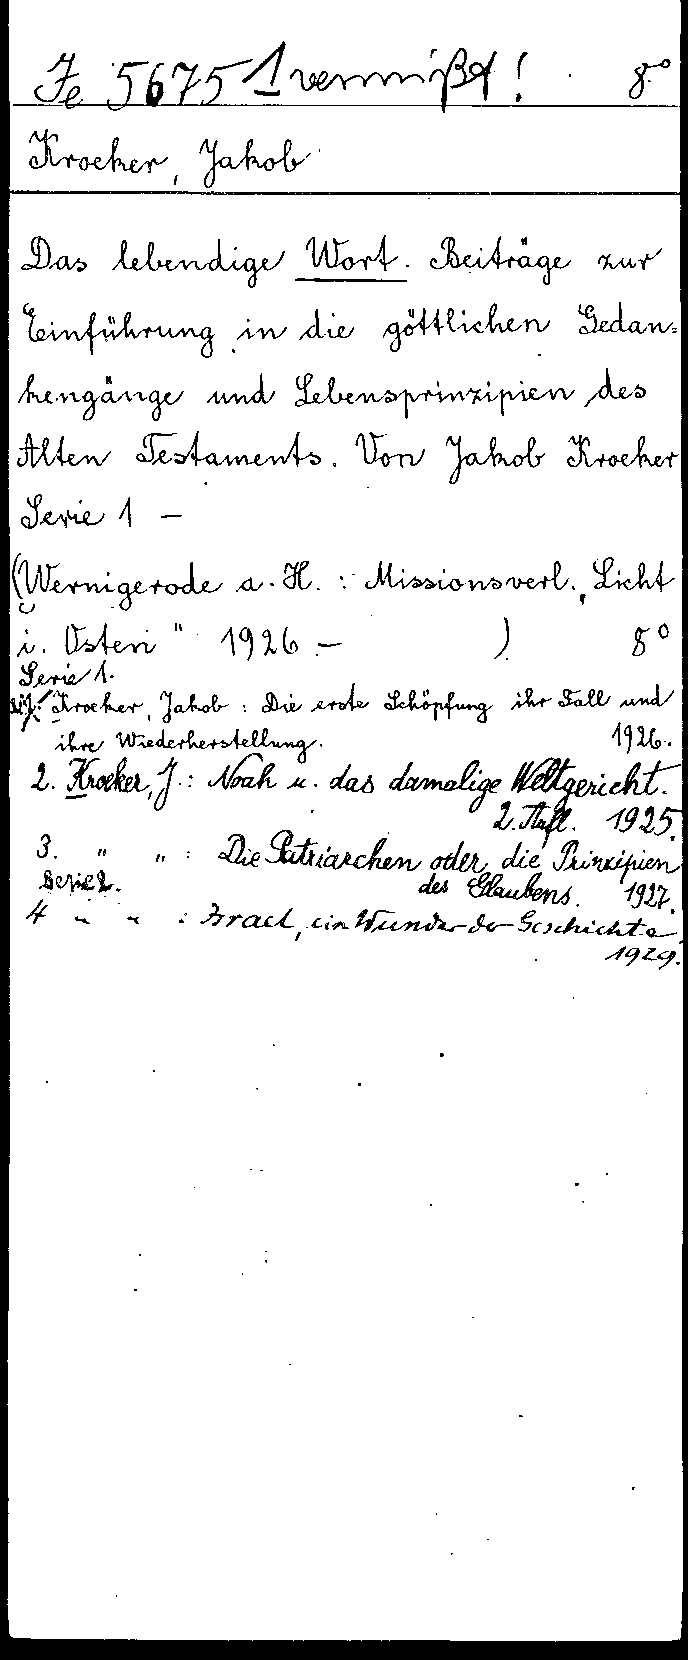 Fe 5675 1 vermißt! 8°
Kroeker, Jakob
Das lebendige Wort. Beiträge zur
Einführung in die göttlichen Gedan=
kengänge und Lebensprinzipien des
Alten Testaments. Von Jakob Kroeker
Serie 1 —
(Wernigerode a. H. : Missionsverl. „Licht
i. Osten" 1926 - ) 8°
Serie 1.
Kroeker, Jakob : Die erste Schöpfung ihr Fall und
ihre Wiederherstellung. 1926.
2. Kroeker, J. : Noah u. das damalige Weltgericht.
2. Aufl. 1925.
3. " " : Die Patriarchen oder die Prinzipien
des Glaubens. 1927.
Serie 2.
4 " " : Israel, ein Wunder der Geschichte
1929.